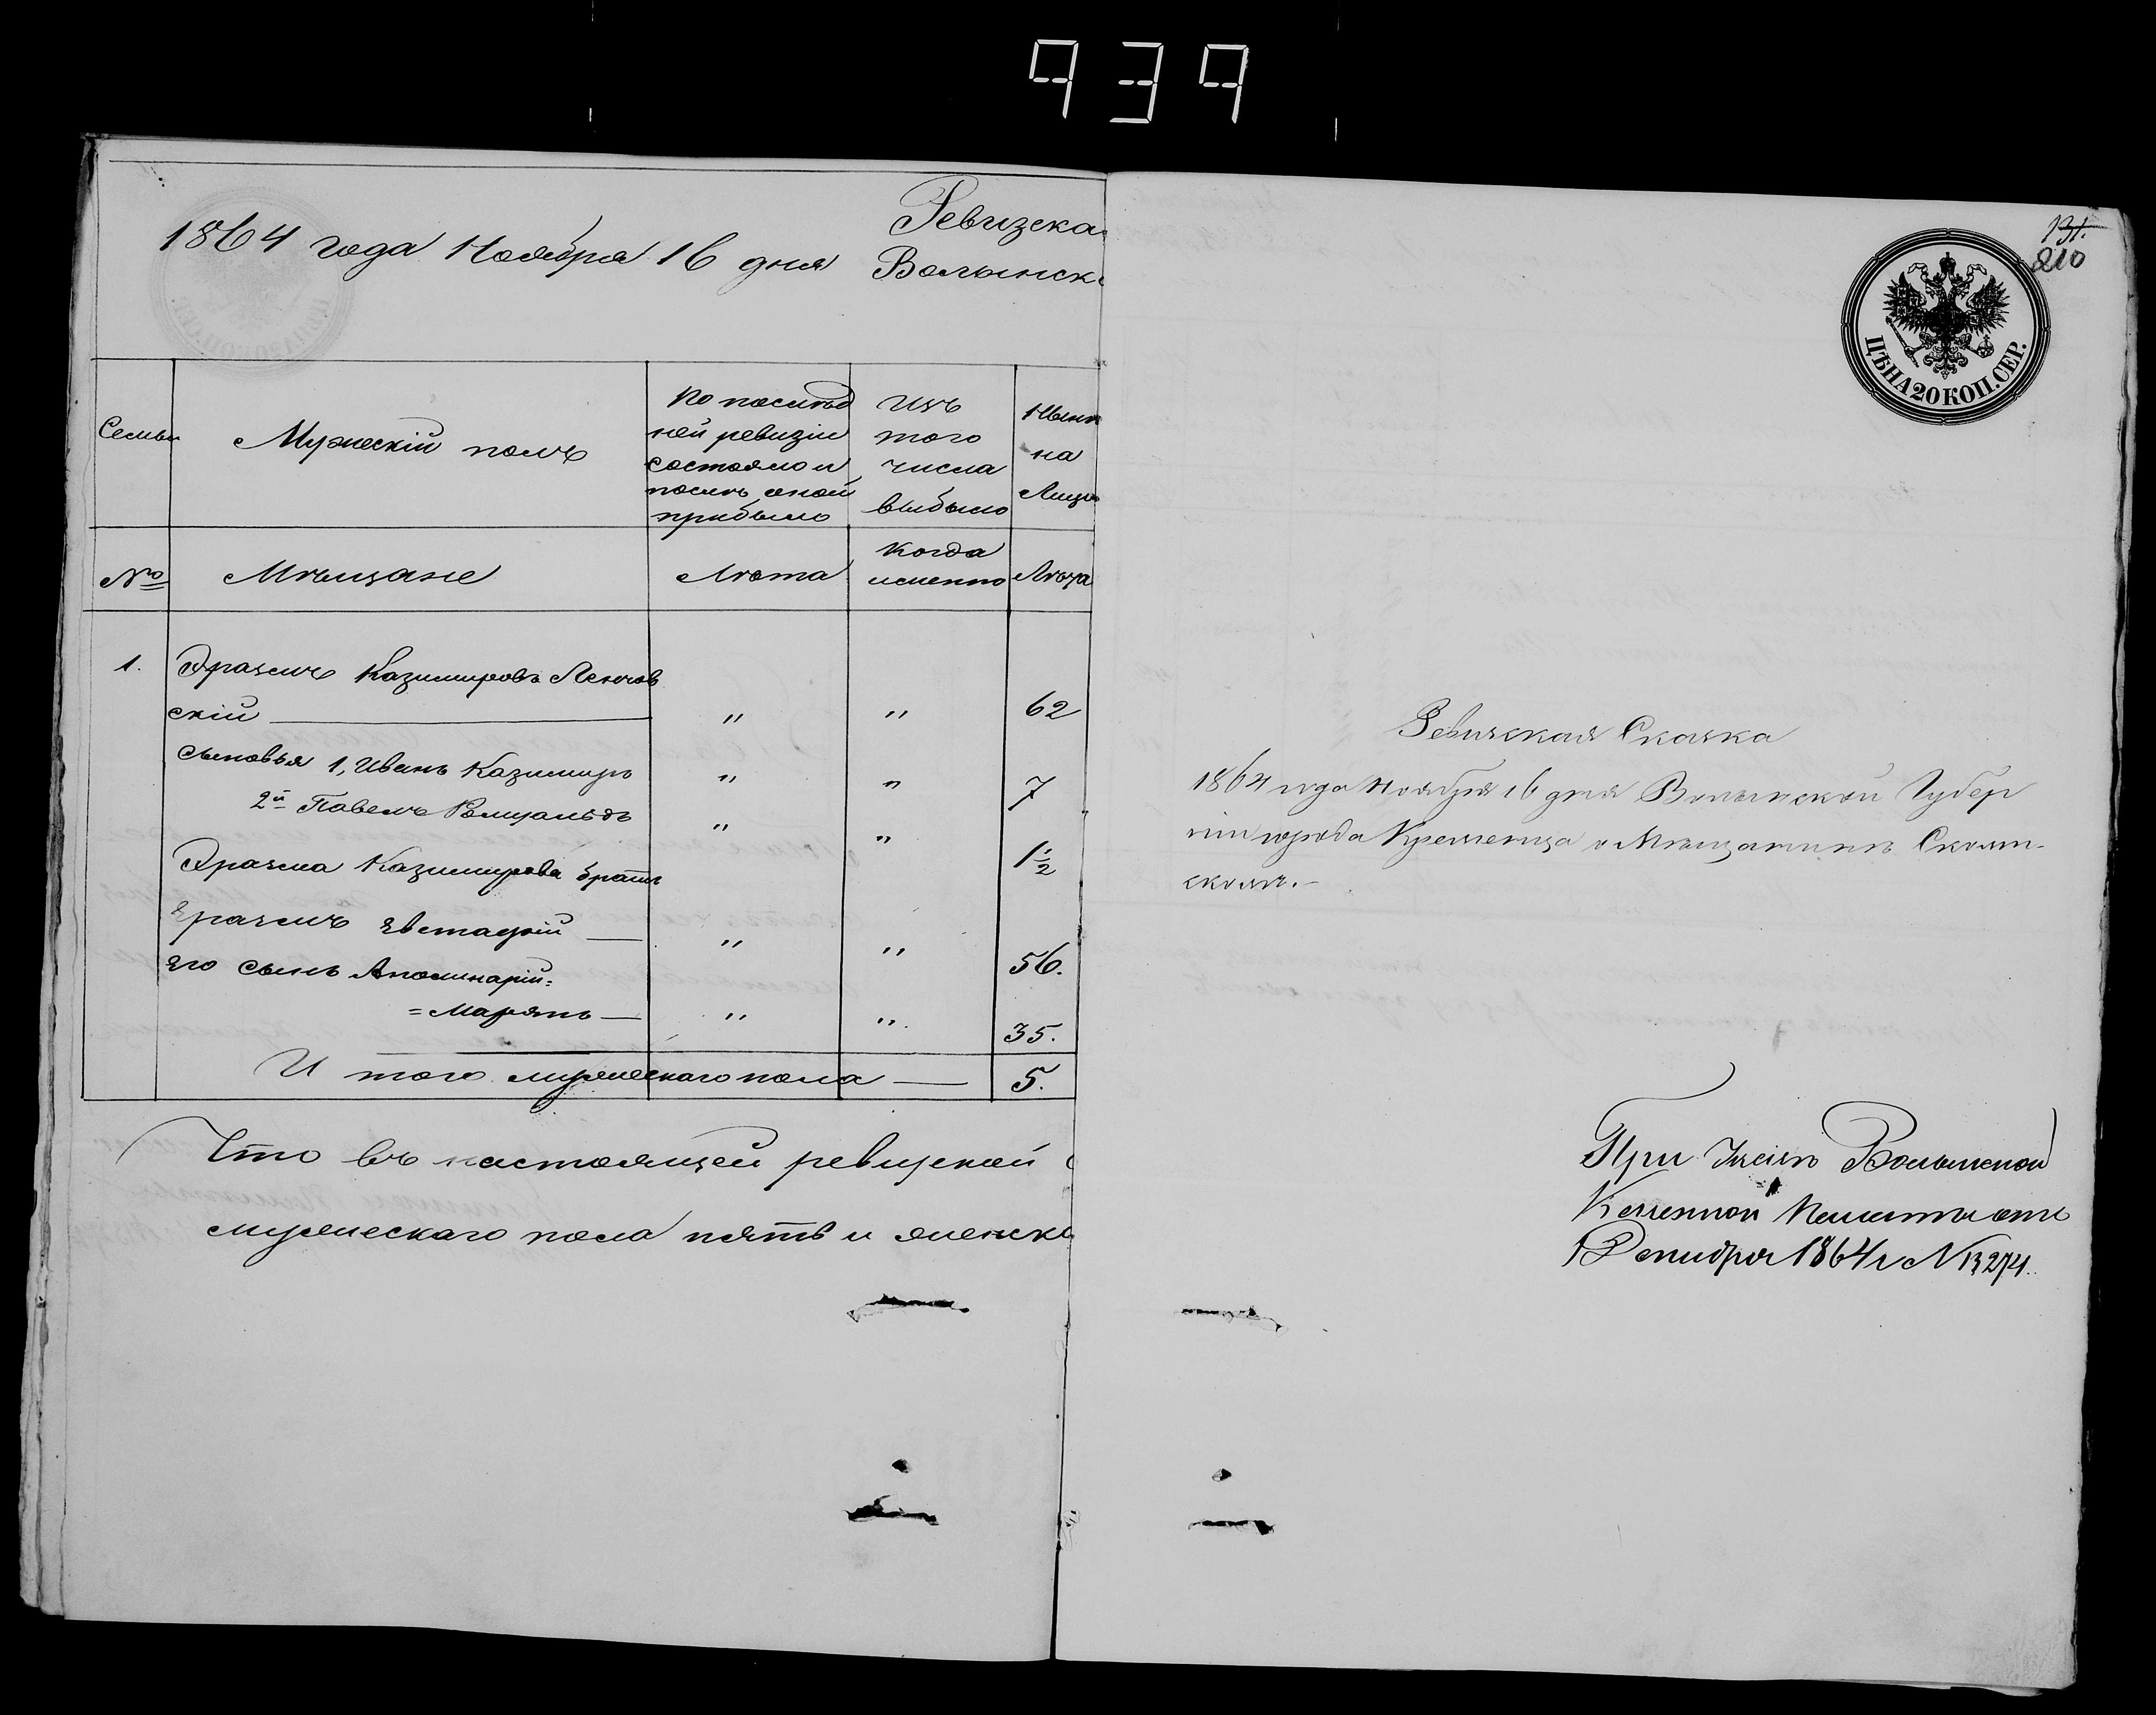 939
1864 года Ноября 16 дня
Ревизска
Волынск
Семьи
Мужескій полъ
По послѣд
ней ревизіи
состояло и
послѣ оной
прибыло
Изъ
того
числа
выбыло
Нынѣ
на
Лицо
№
Мѣщане
Лѣта
Когда
именно
Лѣта
1. Эразмъ Казимировъ
скій — " " 62
Сыновья 1, Иванъ Казимиръ " " 7
2й Павелъ Ромуальдъ " " 1 1/2
Эразма Казимирова братъ
Эразмъ Евстафій — " " 56.
Его сынъ Аполинарій=
=Марянъ — " " 35.
И того мужескаго пола — 5.
Что въ настоящей ревизской
мужескаго пола пять и женска
131.
210
ЦѢНА 20 КОП. СЕР.
Ревизская Сказка
1864 года Ноября 16 дня Волынской Губер
ніи города Кременца о Мѣщанинѣ
При Указѣ Волынской
Казенной Палаты отъ
Декабря 1864 г № 13274.